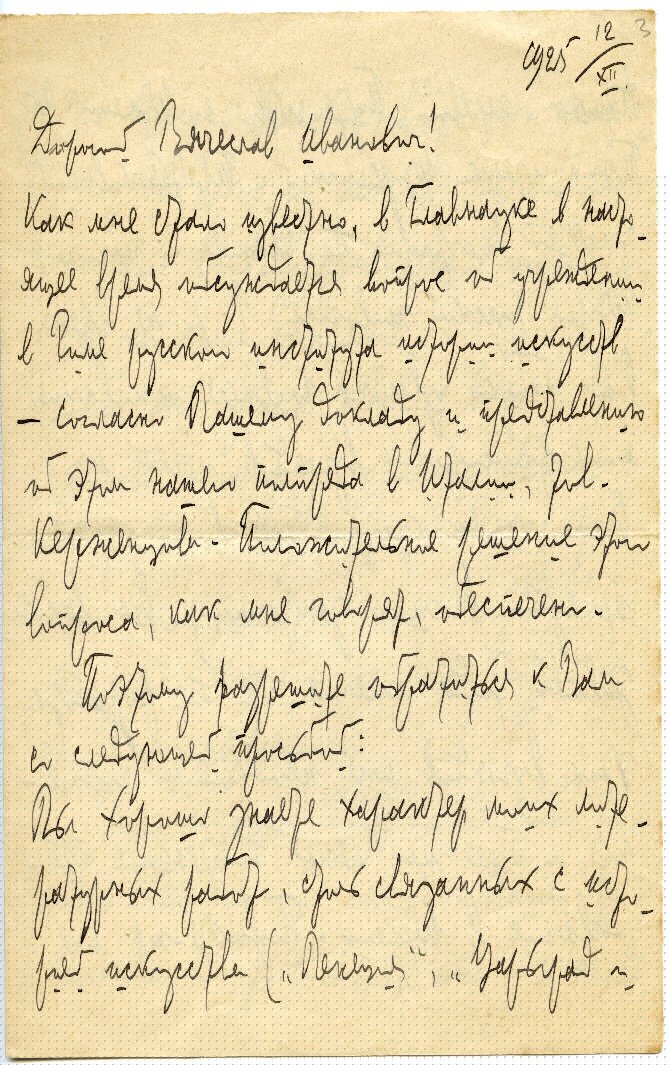 3
1925 12/XII.
Дорогой Вячеслав Иванович!
Как мне стало известно, в Главнауке в насто-
ящее время обсуждается вопрос об учреждении
в Риме русского института истории искусств
— согласно Вашему докладу и представлению
об этом нашего полпреда в Италии, тов.
Керженцова. Положительное решение этого
вопроса, как мне говорят, обеспечено.
Поэтому разрешите обратиться к Вам
со следующей просьбой:
Вы хорошо знаете характер моих лите-
ратурных работ, столь связанных с исто-
рией искусства („Венеция", „Царьград и